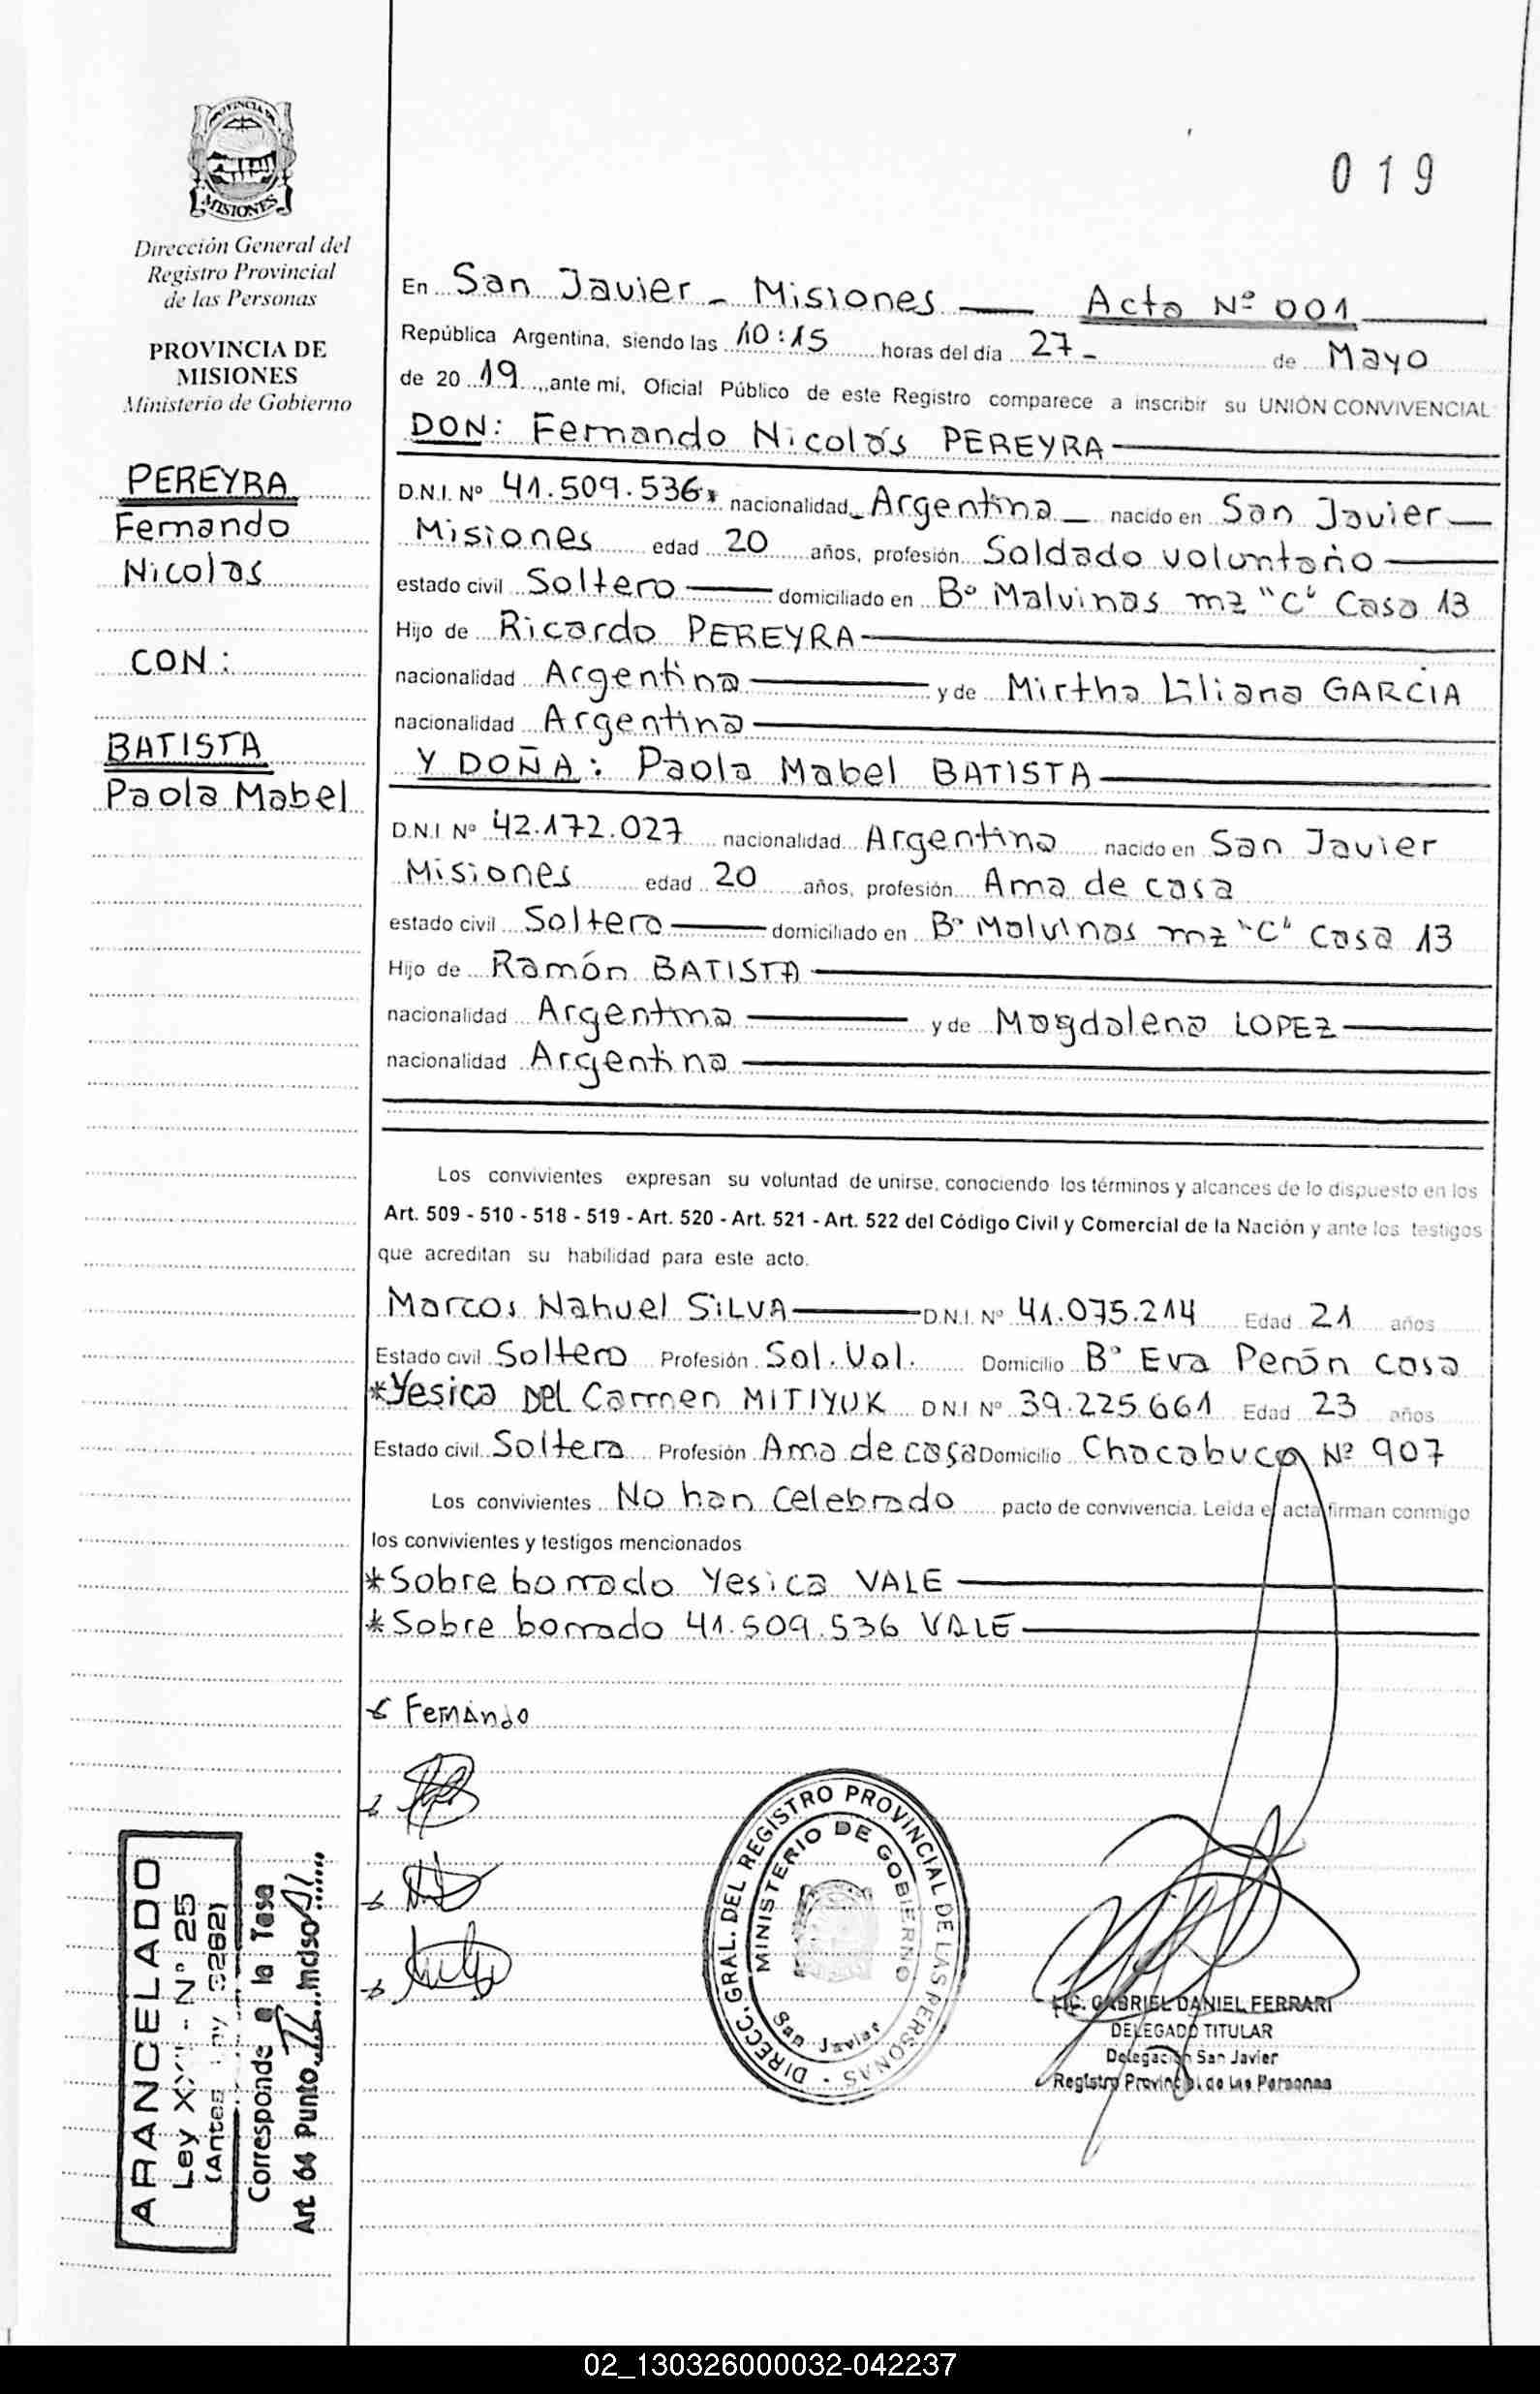 PROVINCIA DE
MISIONES
Dirección General del
Registro Provincial
de las Personas
PROVINCIA DE
MISIONES
Ministerio de Gobierno
PEREYRA
Fernando
Nicolas
CON:
BATISTA
Paola Mabel
019
En San Javier - Misiones Acta Nº 001
República Argentina, siendo las 10:15 horas del día 27 - de Mayo
de 2019, ante mi, Oficial Público de este Registro comparece a inscribir su UNIÓN CONVIVENCIAL
DON: Fernando Nicolás PEREYRA
D.N.I. Nº 41.509.536* nacionalidad Argentina nacido en San Javier
Misiones edad 20 años, profesión Soldado voluntario
estado civil Soltero domiciliado en Bº Malvinas mz "C" Casa 13
Hijo de Ricardo PEREYRA
nacionalidad Argentina y de Mirtha Liliana GARCIA
nacionalidad Argentina
Y DOÑA: Paola Mabel BATISTA
D.N.I Nº 42.172.027 nacionalidad Argentina nacido en San Javier
Misiones edad 20 años, profesión Ama de casa
estado civil Soltera domiciliado en Bº Malvinas mz "C" Casa 13
Hijo de Ramón BATISTA
nacionalidad Argentina y de Magdalena LOPEZ
nacionalidad Argentina
Los convivientes expresan su voluntad de unirse, conociendo los términos y alcances de lo dispuesto en los
Art. 509 - 510 - 518 - 519 - Art. 520 - Art. 521 - Art. 522 del Código Civil y Comercial de la Nación y ante los testigos
que acreditan su habilidad para este acto.
Marcos Nahuel SILVA D.N.I. Nº 41.075.214 Edad 21 años
Estado civil Soltero Profesión Sol. Vol. Domicilio Bº Eva Perón casa
*Yesica Del Carmen MITIYUK D.N.I Nº 39.225.661 Edad 23 años
Estado civil Soltera Profesión Ama de casa Domicilio Chacabuco Nº 907
Los convivientes No han Celebrado pacto de convivencia. Leída el acta firman conmigo
los convivientes y testigos mencionados
*Sobre borrado Yesica VALE
*Sobre borrado 41.509.536 VALE
Fernando
DIRECC. GRAL. DEL REGISTRO PROVINCIAL DE LAS PERSONAS
MINISTERIO DE GOBIERNO
San Javier
LIC. GABRIEL DANIEL FERRARI
DELEGADO TITULAR
Delegación San Javier
Registro Provincial de las Personas
ARANCELADO
Ley - Nº 25
(Antes Ley 3262)
Corresponde a la Tasa
Art. 64 Punto Inciso
02_130326000032-042237